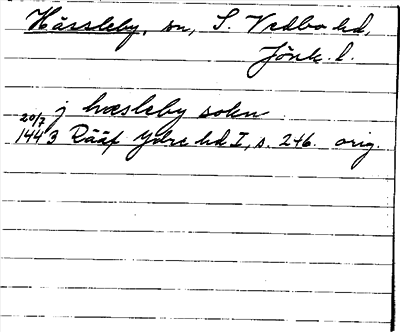 Hässleby, sn, S. Vedbo hd,
Jönk. l.
j hæsleby sokn
20/7
1443 Rääf Ydre hd I, s. 246. orig.